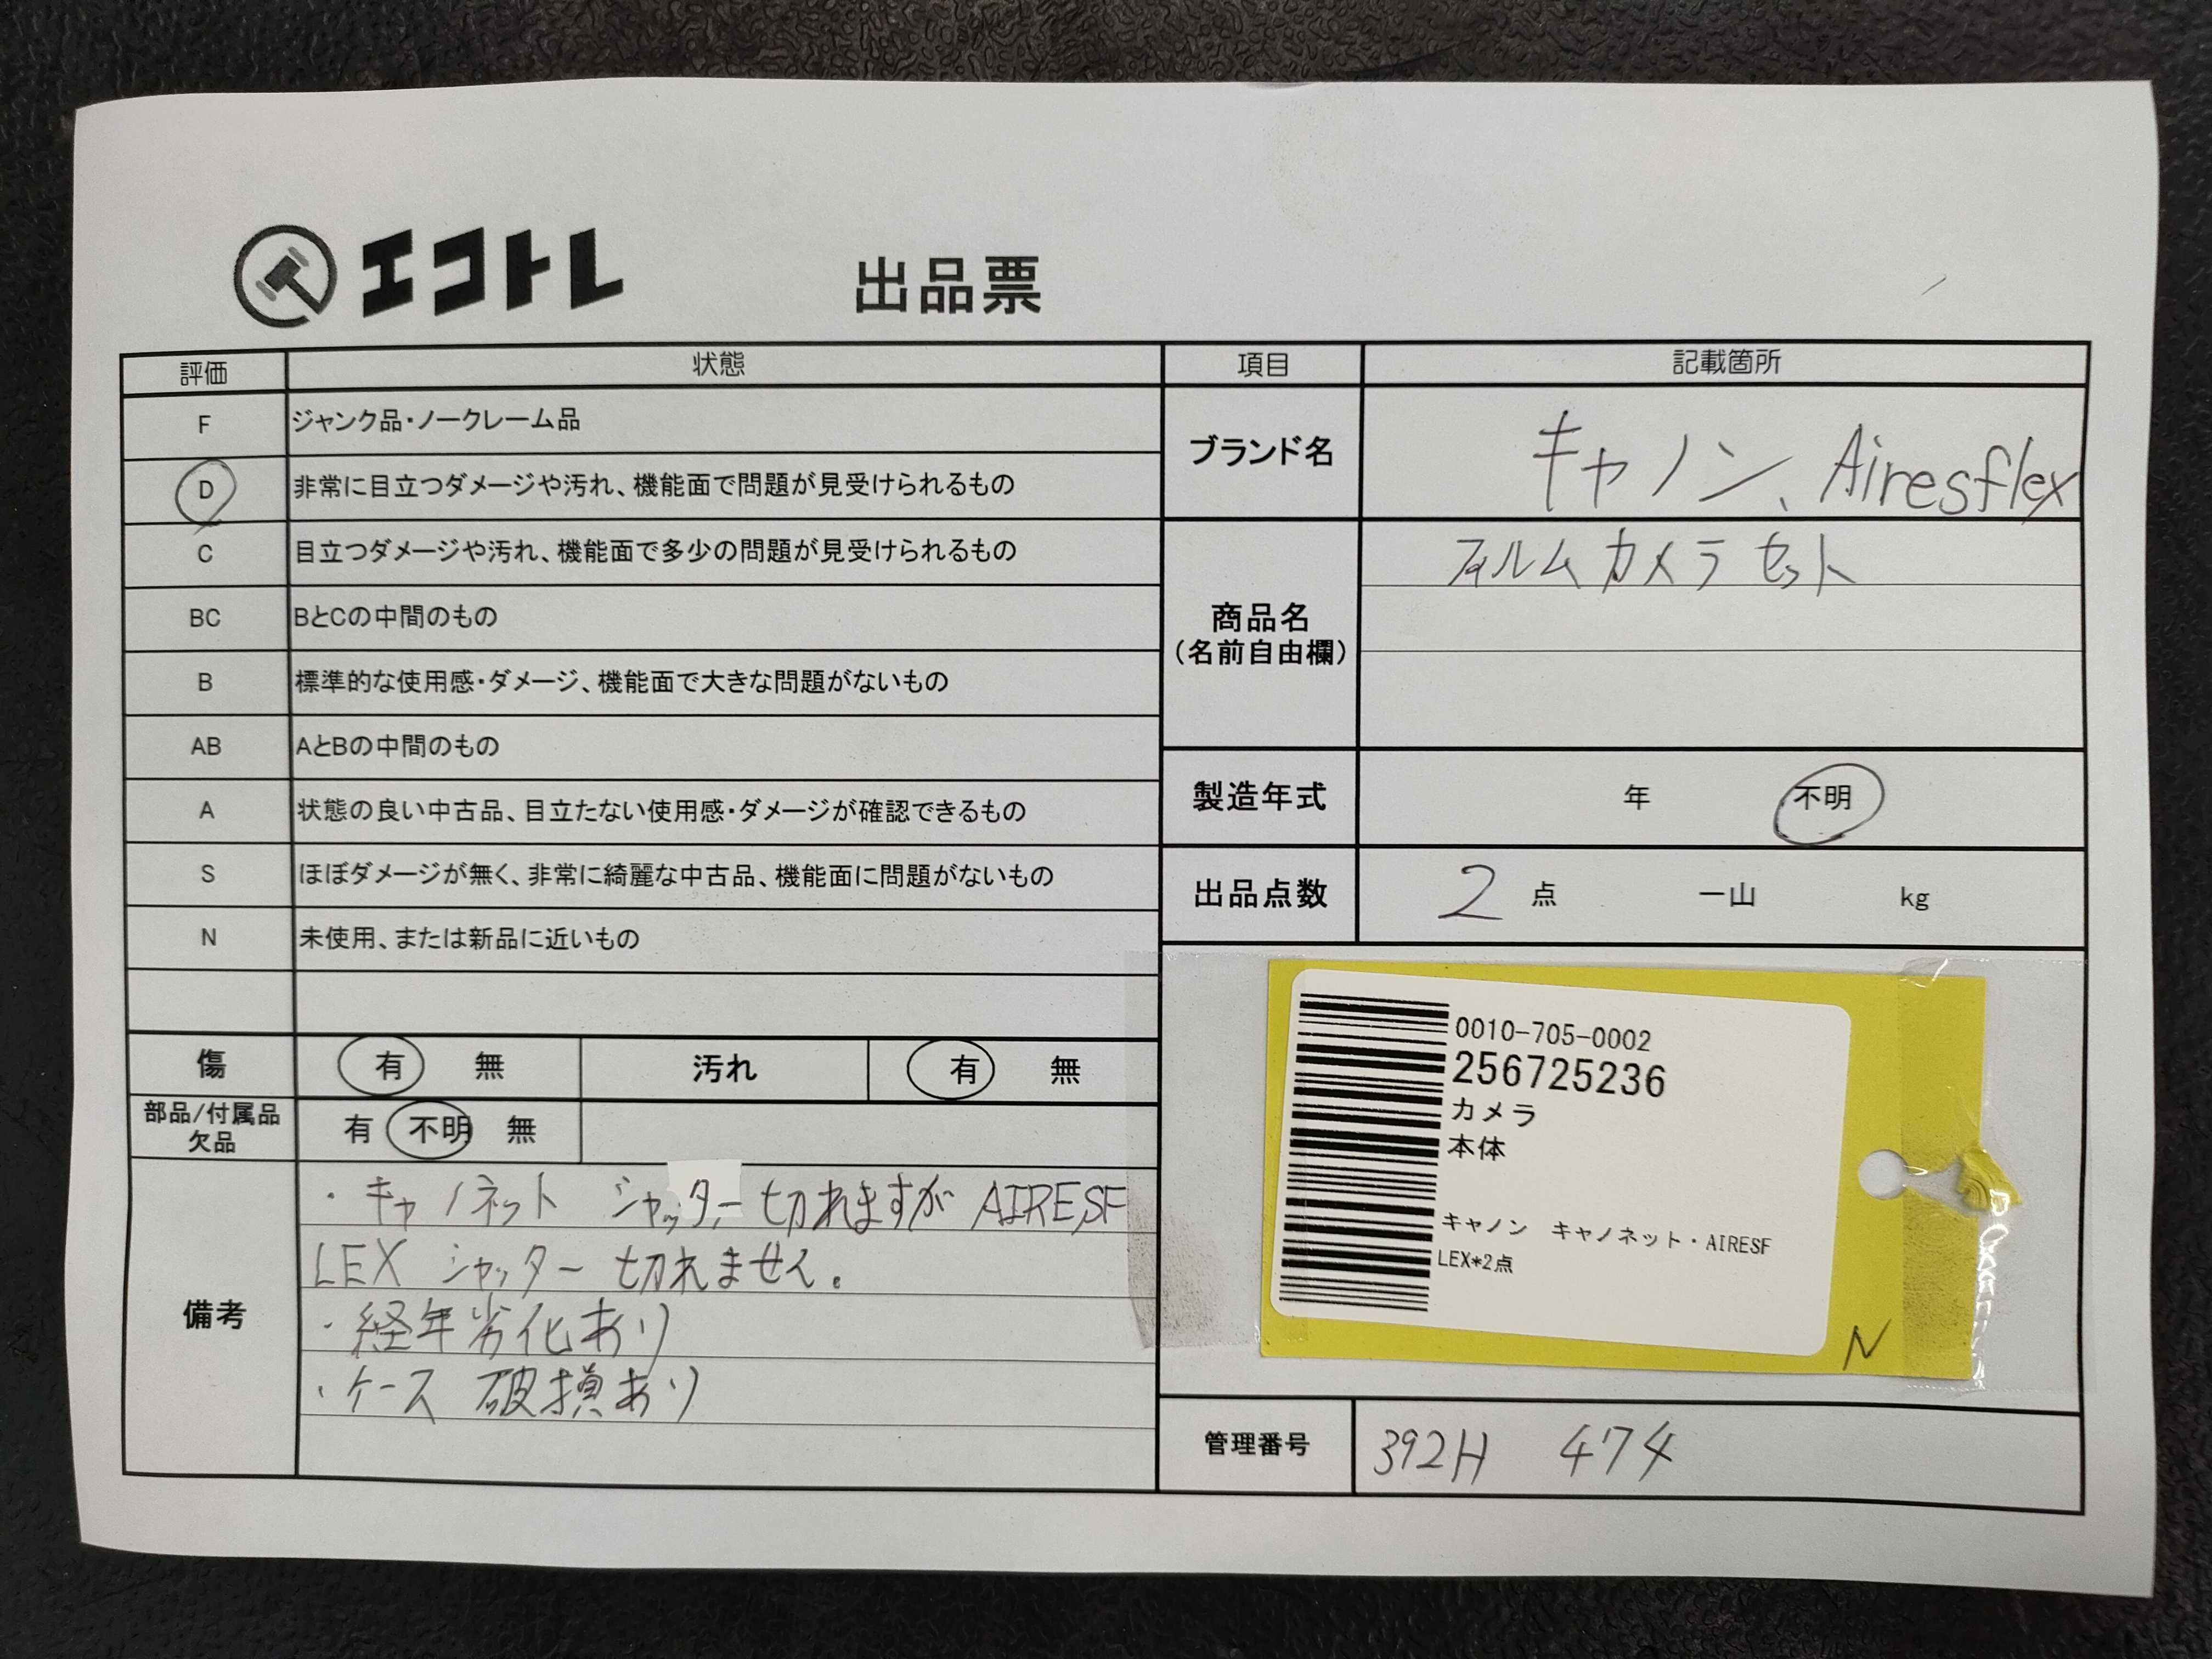 エコトレ
出品票
評価 状態
F ジャンク品・ノークレーム品
D 非常に目立つダメージや汚れ、機能面で問題が見受けられるもの
C 目立つダメージや汚れ、機能面で多少の問題が見受けられるもの
BC BとCの中間のもの
B 標準的な使用感・ダメージ、機能面で大きな問題がないもの
AB AとBの中間のもの
A 状態の良い中古品、目立たない使用感・ダメージが確認できるもの
S ほぼダメージが無く、非常に綺麗な中古品、機能面に問題がないもの
N 未使用、または新品に近いもの
傷 有 無 汚れ 有 無
部品/付属品
欠品
有 不明 無
備考
・キャノネット シャッター切れますが AIRESF
LEX シャッター 切れません。
・経年劣化あり
・ケース 破損あり
項目 記載箇所
ブランド名 キャノン、Airesflex
商品名
(名前自由欄)
フィルムカメラ セット
製造年式 年 不明
出品点数 2 点 一山 kg
0010-705-0002
256725236
カメラ
本体
キャノン キャノネット・AIRESF
LEX*2点
N
管理番号 392H 474